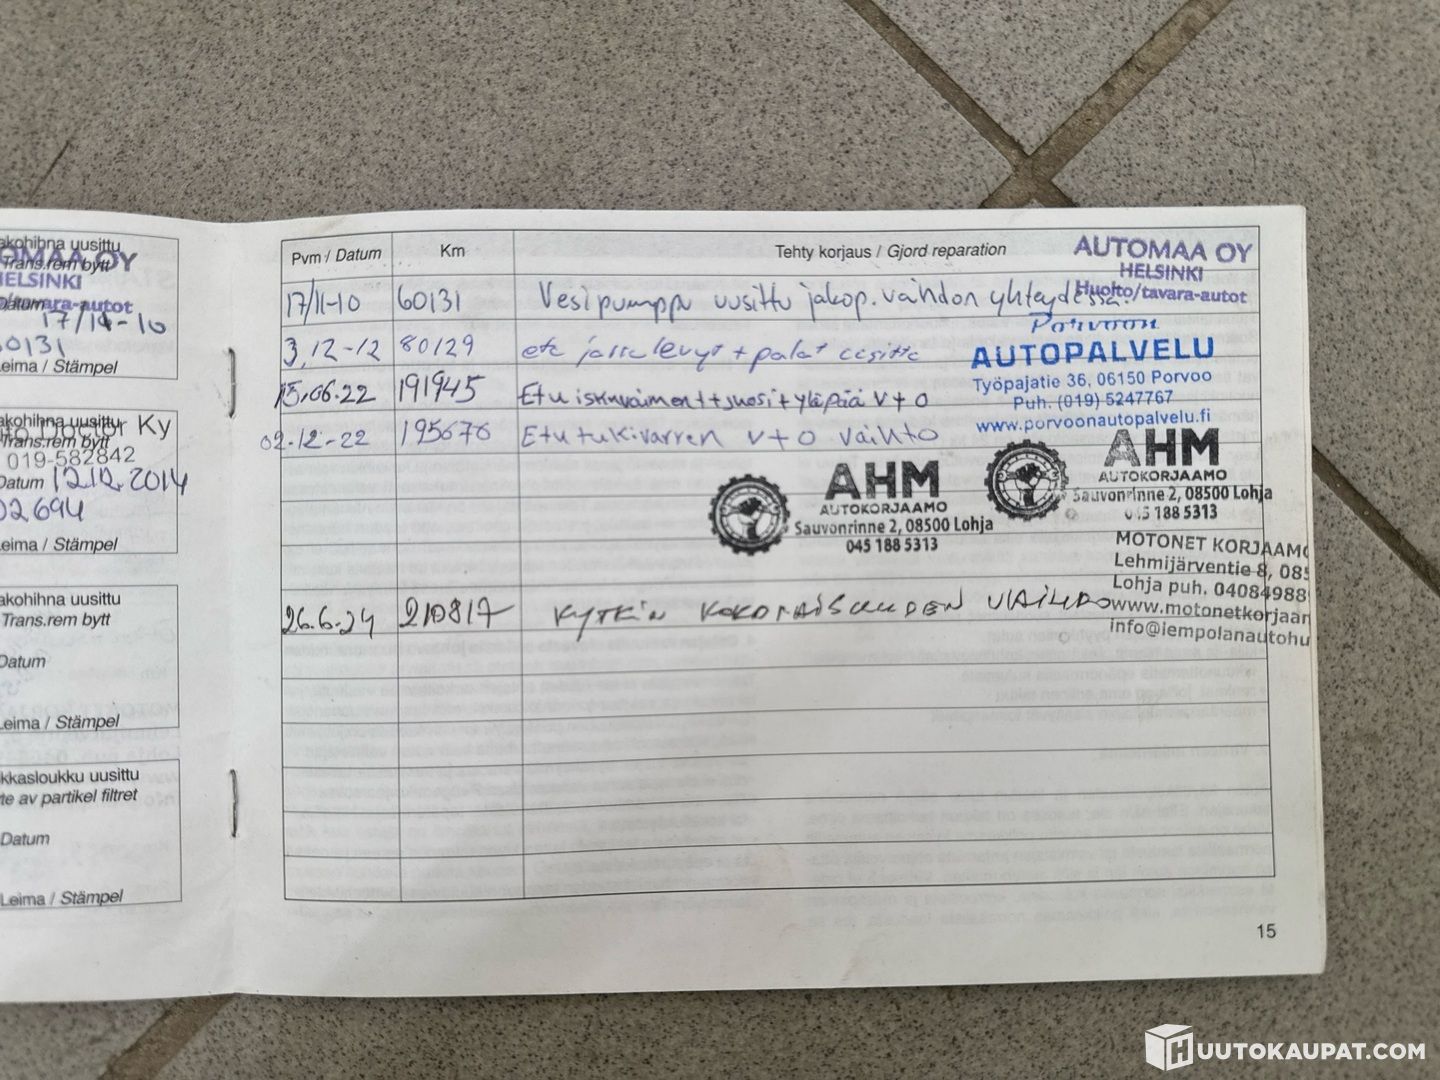 akohihna uusittu
Trans.rem bytt
OMAA OY
HELSINKI
Datum
tavara-autot
17/11-10
60131
Leima / Stämpel
akohihna uusittu
Trans.rem bytt
Doctor Ky
019-582842
Datum 12.12.2014
02694
Leima / Stämpel
akohihna uusittu
Trans.rem bytt
Datum
Leima / Stämpel
kkasloukku uusittu
te av partikel filtret
Datum
Leima / Stämpel
Pvm / Datum Km Tehty korjaus / Gjord reparation
AUTOMAA OY
HELSINKI
Huolto/tavara-autot
17/11-10 60131 Vesipumppu uusittu jakop.vaihdon yhteydessä.
3.12-12 80129 etu ja levyt + palat
Porvoon
AUTOPALVELU
Työpajatie 36, 06150 Porvoo
Puh. (019) 5247767
www.porvoonautopalvelu.fi
15.06.22 191945 Etuiskunvaimentt+juosi+yläpää v+o
02-12-22 195676 Etutukivarren v+o vaihto
AHM
AUTOKORJAAMO
Sauvonrinne 2, 08500 Lohja
045 188 5313
AHM
AUTOKORJAAMO
Sauvonrinne 2, 08500 Lohja
045 188 5313
MOTONET KORJAAMO
Lehmijärventie 8, 085
Lohja puh. 04084988
www.motonetkorjaam
info@lempolanautohu
26.6.24 210817 KYTKIN KOKONAISUUDEN VAIHDO
15
HUUTOKAUPAT.COM